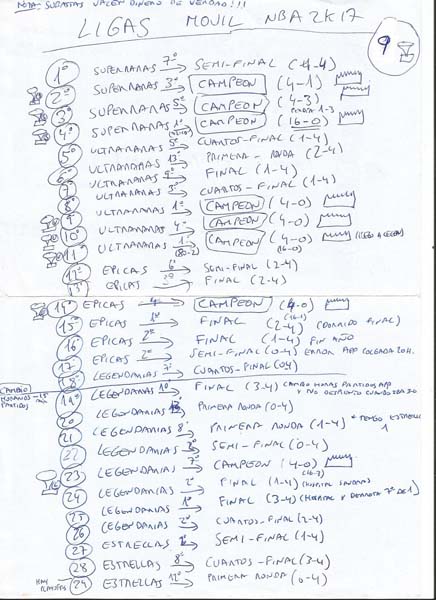 NOTA: SUBASTAS VALEN DINERO DE VERDAD!!!
LIGAS MOVIL NBA 2K17
9
1º SUPERRARAS 7º → SEMI-FINAL (4-4)
2º SUPERRARAS 3º → CAMPEON (4-1)
3º SUPERRARAS 5º → CAMPEON (4-3)
4º SUPERRARAS 1º → CAMPEON (16-0)
5º ULTRARRARAS 5º → CUARTOS-FINAL (1-4)
6º ULTRARRARAS 13º → PRIMERA-RONDA (2-4)
7 ULTRARRARAS 9º → FINAL (1-4)
8º ULTRARRARAS 3º → CUARTOS-FINAL (1-4)
9º ULTRARRARAS 1º → CAMPEON (4-0)
10º ULTRARRARAS 4º → CAMPEON (4-0)
11º ULTRARRARAS 1º → CAMPEON (4-0)
(80-2) (16-0)
12º EPICAS 6º → SEMI-FINAL (2-4)
13º EPICAS → FINAL (2-4)
14º EPICAS → CAMPEON (4-0)
15º EPICAS 1º → FINAL (2-4) (DORMIDO FINAL)
16 EPICAS 2º → FINAL (1-4) FIN AÑO
17 EPICAS 2º → SEMI-FINAL (0-4) ERROR APP COLGADA 20H.
18 LEGENDARIAS 7º → CUARTOS-FINAL (0-4)
CAMBIO HORARIOS PARTIDOS
19 LEGENDARIAS 10º → FINAL (3-4) CAMBIO HORAS PARTIDOS APP
20 LEGENDARIAS → PRIMERA RONDA (0-4)
21 LEGENDARIAS 8º → PRIMERA RONDA (1-4) * TENGO ESTRELLA 1
22 LEGENDARIAS → SEMI-FINAL (0-4)
23 LEGENDARIAS 7º → CAMPEON (4-0)
24 LEGENDARIAS 2º → FINAL (1-4)
25 LEGENDARIAS 1º → FINAL (3-4) (HOSPITAL Y DERROTA 7º DE 1)
26 LEGENDARIAS 2º → CUARTOS-FINAL (2-4)
27 ESTRELLAS → SEMI-FINAL (1-4)
28 ESTRELLAS 8º → CUARTOS-FINAL (3-4)
29 ESTRELLAS 12º → PRIMERA RONDA (0-4)